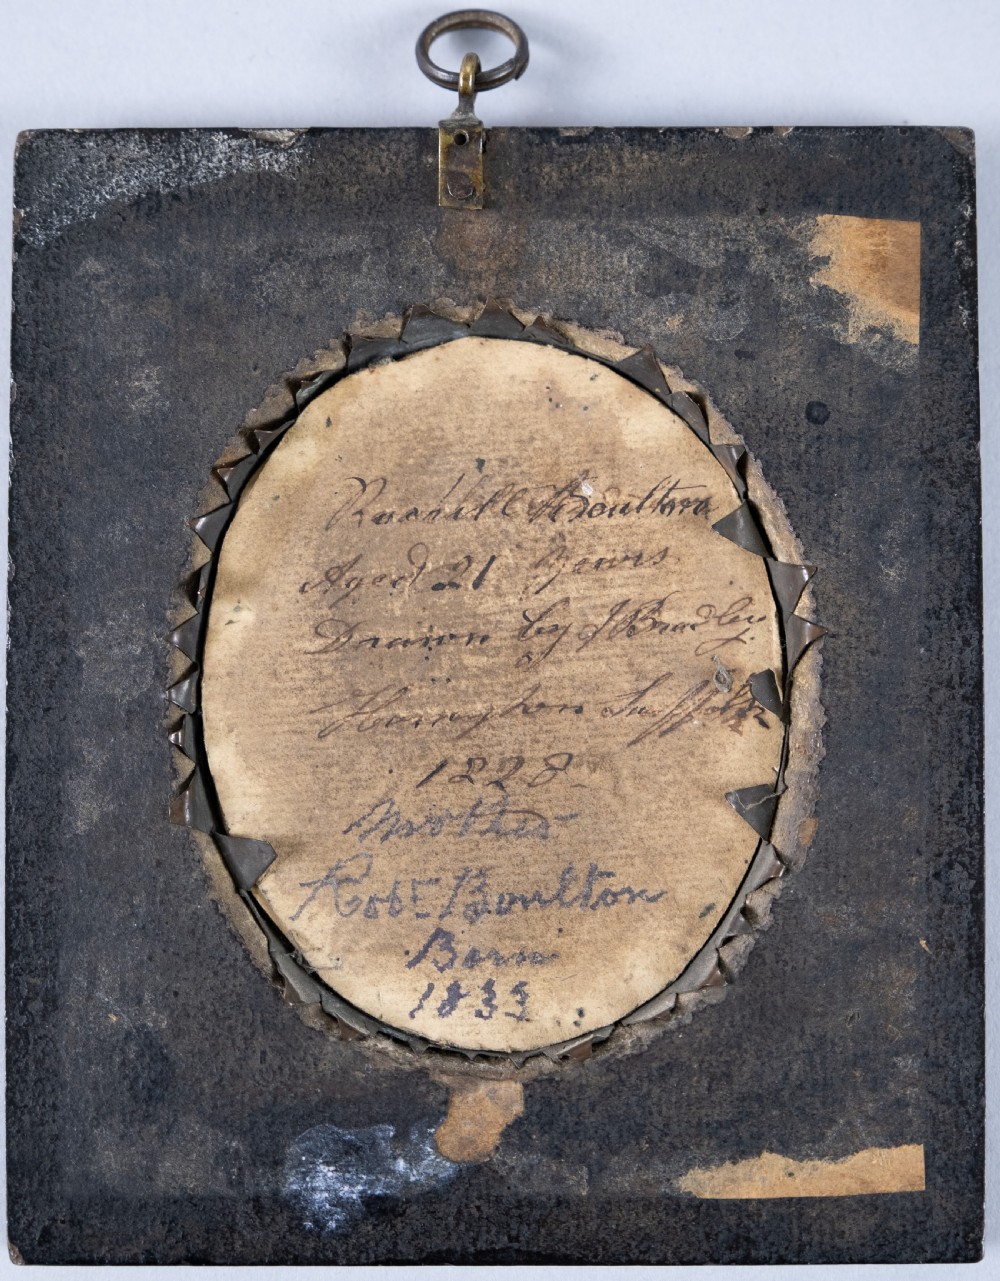 Boulton
Aged 21 Years
Drawn by J Bradley
Suffolk
1828
Mother
Robt Boulton
Born
1833